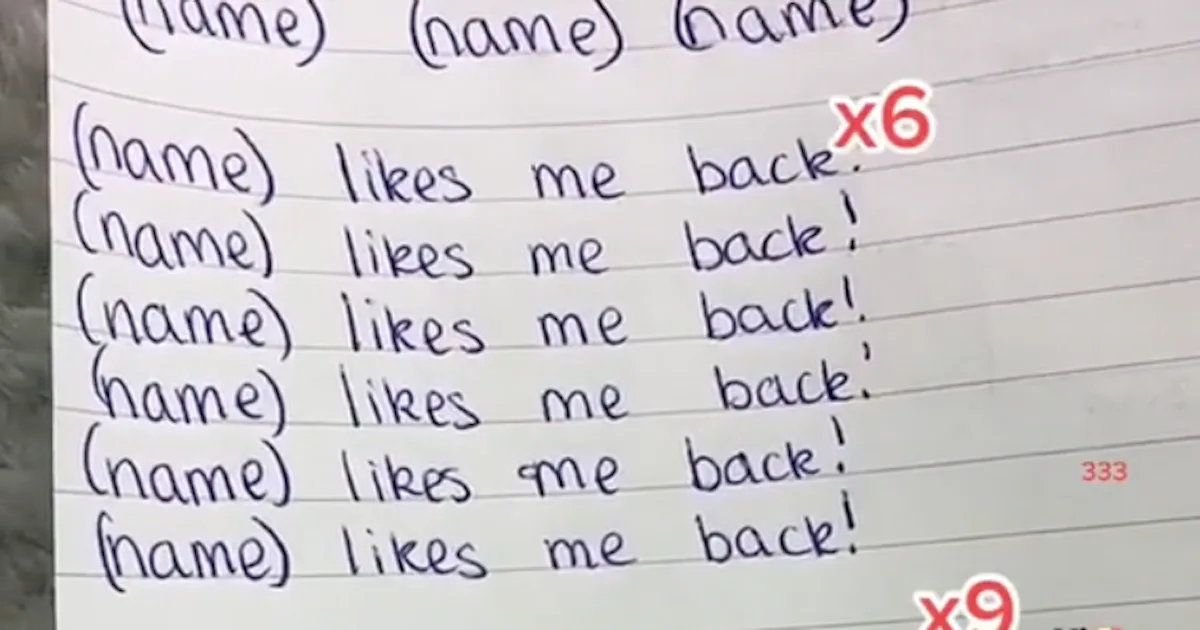 (name) (name) (name)
x6
(name) likes me back!
(name) likes me back!
(name) likes me back!
(name) likes me back!
(name) likes me back!
333
(name) likes me back!
x9